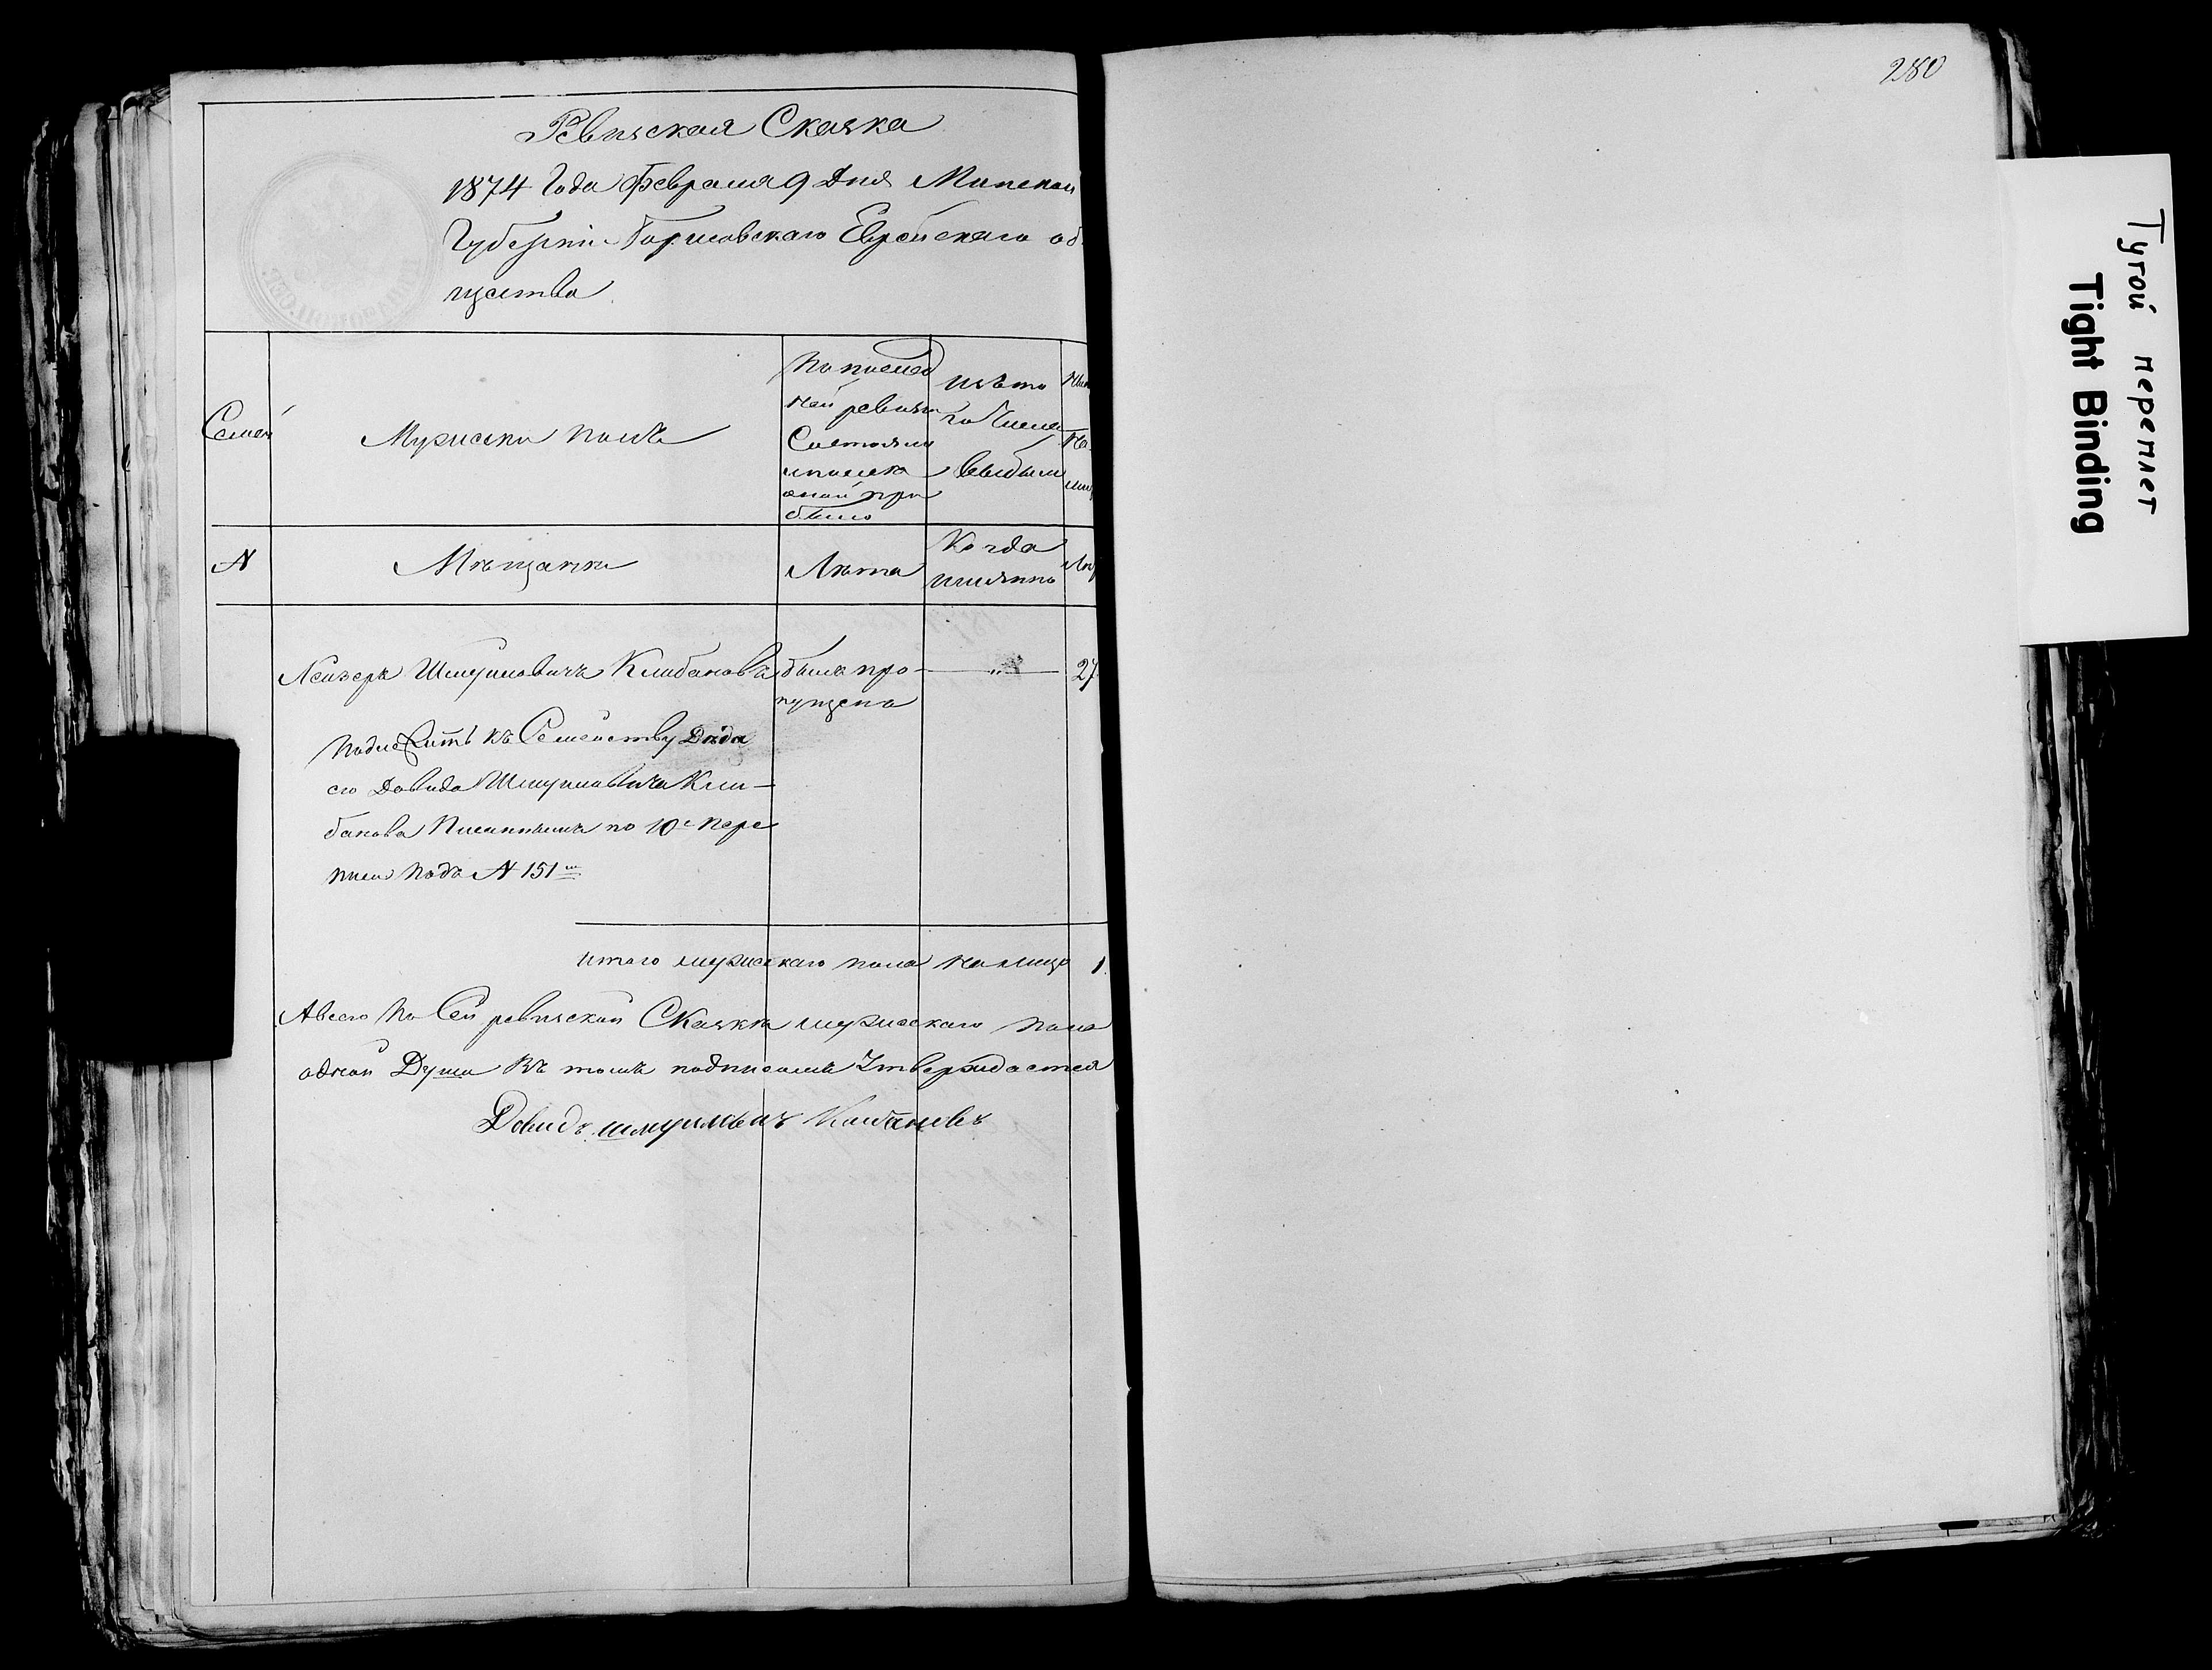 280
Ревизская Сказка
1874 Года Февраля 9 Дня Минской
Губерніи Борисовскаго Еврейскаго об
щества
Семей
Мужески полъ
По послед
ней ревизи
Состояло
и после
оной при
было
Изъ то
го числа
выбыли
Ны
не
N
Мѣщанъ
Лѣта
Когда
имянно
Лѣт
Лейзеръ Шмуиловичъ Климбановъ
былъ про-
пущенъ
"
27
Подлежитъ къ Семейству Дяди
его Довида Шмуиловича Клим-
банова Писаннымъ по 10й пере
писи Подъ N 151м
итого мужескаго пола на лицо 1.
А всего по Сей ревизской Сказкѣ мужескаго пола
одной Души Въ томъ подписомъ Утверждается
Довидъ Шмуиловъ Климбановъ
Тугой переплет
Tight Binding